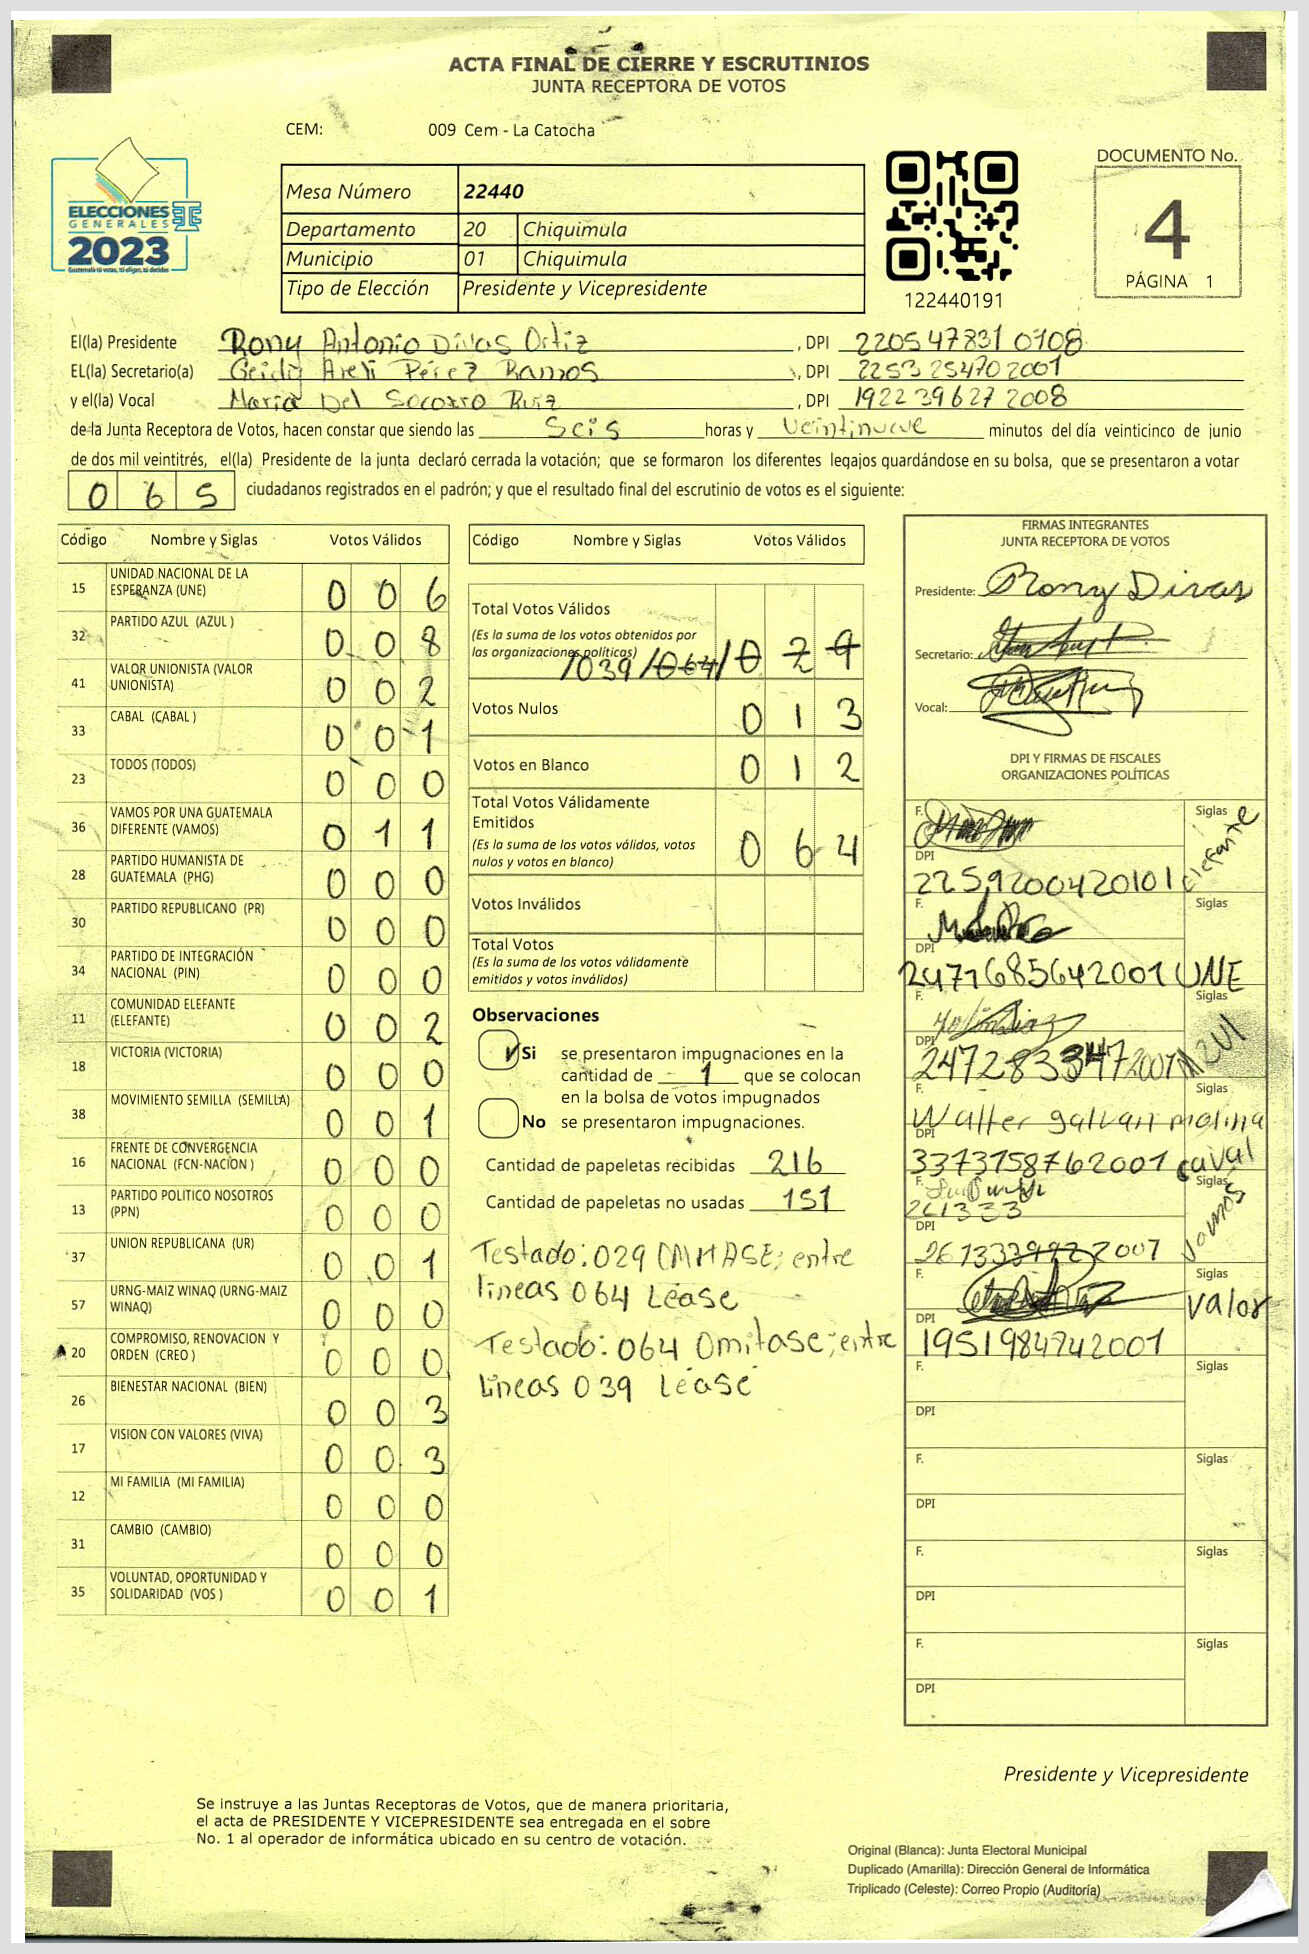 ACTA FINAL DE CIERRE Y ESCRUTINIOS
JUNTA RECEPTORA DE VOTOS
CEM: 009 Cem - La Catocha
ELECCIONES
GENERALES
2023
Guatemala tú votas, tú eliges, tú decides
Mesa Número 22440
Departamento 20 Chiquimula
Municipio 01 Chiquimula
Tipo de Elección Presidente y Vicepresidente
122440191
DOCUMENTO No.
4
PÁGINA 1
El(la) Presidente Rony Antonio Divas Ortiz , DPI 2205 47831 0708
EL(la) Secretario(a) Geidy Areli Pérez Ramos , DPI 2253 25470 2001
y el(la) Vocal Maria Del Socorro Ruiz , DPI 1922 39627 2008
de la Junta Receptora de Votos, hacen constar que siendo las Seis horas y veintinueve minutos del día veinticinco de junio
de dos mil veintitrés, el(la) Presidente de la junta declaró cerrada la votación; que se formaron los diferentes legajos quardándose en su bolsa, que se presentaron a votar
0 6 5 ciudadanos registrados en el padrón; y que el resultado final del escrutinio de votos es el siguiente:
Código Nombre y Siglas Votos Válidos
15 UNIDAD NACIONAL DE LA ESPERANZA (UNE) 0 0 6
32 PARTIDO AZUL (AZUL ) 0 0 8
41 VALOR UNIONISTA (VALOR UNIONISTA) 0 0 2
33 CABAL (CABAL ) 0 0 1
23 TODOS (TODOS) 0 0 0
36 VAMOS POR UNA GUATEMALA DIFERENTE (VAMOS) 0 1 1
28 PARTIDO HUMANISTA DE GUATEMALA (PHG) 0 0 0
30 PARTIDO REPUBLICANO (PR) 0 0 0
34 PARTIDO DE INTEGRACIÓN NACIONAL (PIN) 0 0 0
11 COMUNIDAD ELEFANTE (ELEFANTE) 0 0 2
18 VICTORIA (VICTORIA) 0 0 0
38 MOVIMIENTO SEMILLA (SEMILLA) 0 0 1
16 FRENTE DE CONVERGENCIA NACIONAL (FCN-NACION ) 0 0 0
13 PARTIDO POLITICO NOSOTROS (PPN) 0 0 0
37 UNION REPUBLICANA (UR) 0 0 1
57 URNG-MAIZ WINAQ (URNG-MAIZ WINAQ) 0 0 0
20 COMPROMISO, RENOVACION Y ORDEN (CREO ) 0 0 0
26 BIENESTAR NACIONAL (BIEN) 0 0 3
17 VISION CON VALORES (VIVA) 0 0 3
12 MI FAMILIA (MI FAMILIA) 0 0 0
31 CAMBIO (CAMBIO) 0 0 0
35 VOLUNTAD, OPORTUNIDAD Y SOLIDARIDAD (VOS ) 0 0 1
Código Nombre y Siglas Votos Válidos
Total Votos Válidos
(Es la suma de los votos obtenidos por
las organizaciones políticas)
/039/064/0 2 9
Votos Nulos 0 1 3
Votos en Blanco 0 1 2
Total Votos Válidamente
Emitidos
(Es la suma de los votos válidos, votos
nulos y votos en blanco)
0 6 4
Votos Inválidos
Total Votos
(Es la suma de los votos válidamente
emitidos y votos inválidos)
Observaciones
Si se presentaron impugnaciones en la
cantidad de 1 que se colocan
en la bolsa de votos impugnados
No se presentaron impugnaciones.
Cantidad de papeletas recibidas 216
Cantidad de papeletas no usadas 151
Testado: 029 OMITASE; entre
lineas 064 Léase
Testado: 064 Omitase; entre
lineas 039 Léase
FIRMAS INTEGRANTES
JUNTA RECEPTORA DE VOTOS
Presidente: Rony Divas
Secretario:
Vocal:
DPI Y FIRMAS DE FISCALES
ORGANIZACIONES POLÍTICAS
F. Siglas elefante
DPI 2259200420101
F. Siglas
DPI 2471685642001 UNE
F. Siglas
DPI
F. Walter galvan molina Siglas
DPI 3373758762001 caval
F. Siglas vamos
261333
DPI
F. Siglas valor
DPI 1951984742001
F. Siglas
DPI
F. Siglas
DPI
F. Siglas
DPI
F. Siglas
DPI
Presidente y Vicepresidente
Se instruye a las Juntas Receptoras de Votos, que de manera prioritaria,
el acta de PRESIDENTE Y VICEPRESIDENTE sea entregada en el sobre
No. 1 al operador de informática ubicado en su centro de votación.
Original (Blanca): Junta Electoral Municipal
Duplicado (Amarilla): Dirección General de Informática
Triplicado (Celeste): Correo Propio (Auditoría)